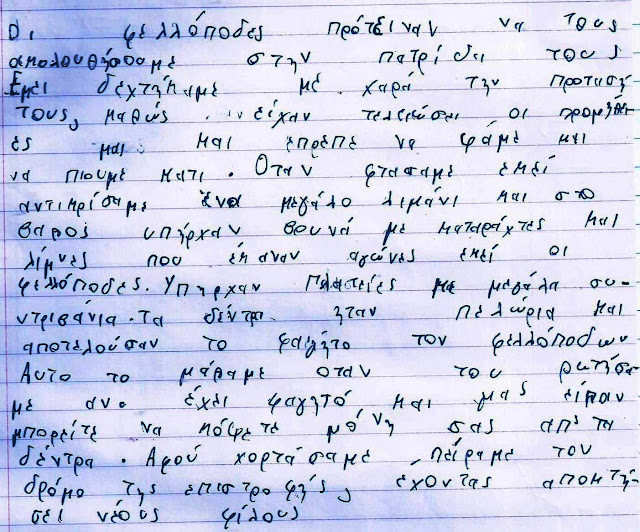 Οι φελλόποδες πρότειναν να τους
ακολουθήσουμε στην πατρίδα τους
Εμεί δεχτήκαμε με χαρά την προταση
τους, καθώς είχαν τελειώσει οι προμήθι
ές και και επρεπε να φάμε και
να πιουμε κατι. Οταν φτασαμε εκεί
αντικρίσαμε ένα μεγάλο λιμάνι και στο
βαθος υπήρχαν βουνά με καταράχτες και
λίμνες που έκαναν αγώνες εκεί οι
φελλόποδες. Υπηρχαν πλατείες με μεγάλα συ-
ντριβάνια. Τα δέντρα ηταν πελώρια και
αποτελούσαν το φαγητο τον φελλόποδων
Αυτο το μάραμε οταν του ρωτήσα
με αν έχει φαγητό και μας είπαν
μπορείτε να κόψετε μόνη σας απ'τα
δέντρα. Αφού χορτάσαμε πείραμε τον
δρόμο της επιστροφής, έχοντας αποκτή-
σει νέους φίλους